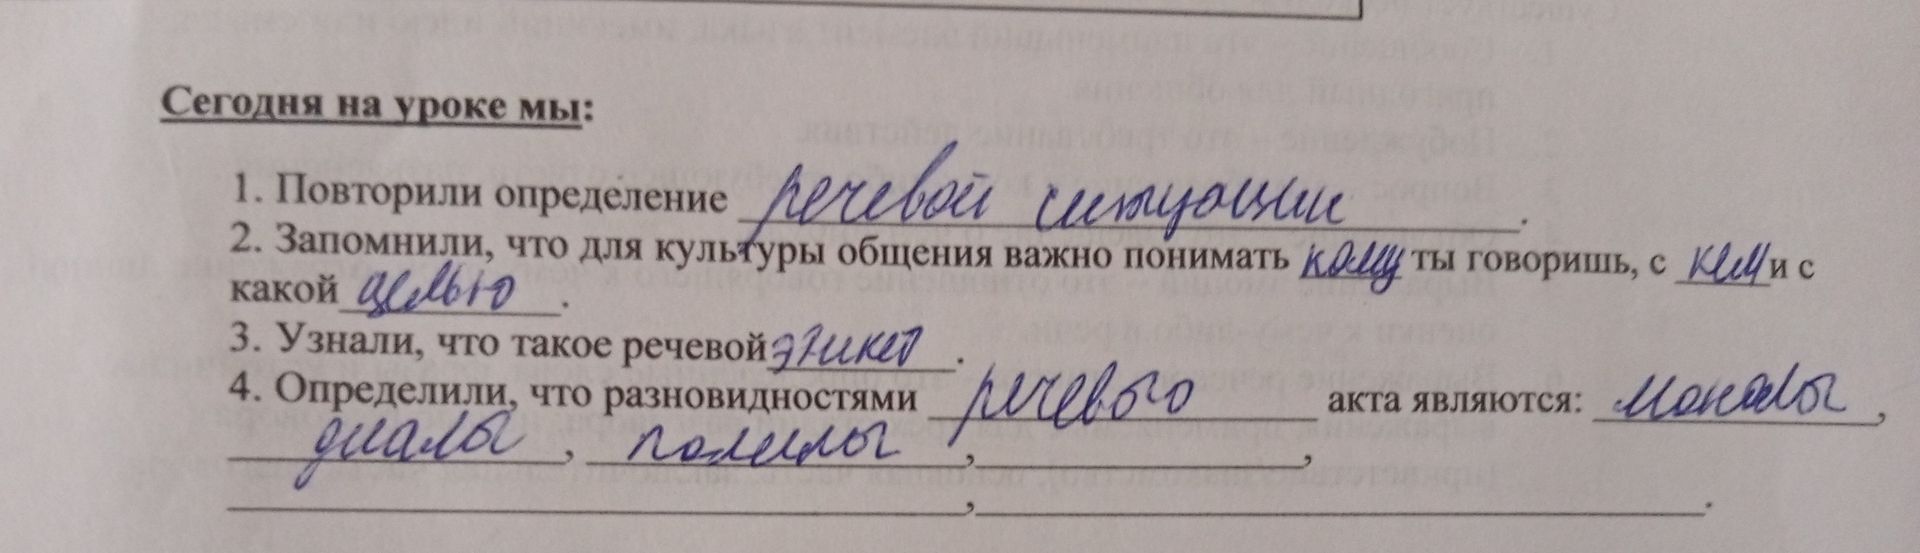 Сегодня на уроке мы:
1. Повторили определение речевой ситуации.
2. Запомнили, что для культуры общения важно понимать кому ты говоришь, с кем и с
какой целью.
3. Узнали, что такое речевой этикет.
4. Определили, что разновидностями речевого акта являются: монолы,
диалы, полилы, ,
, .